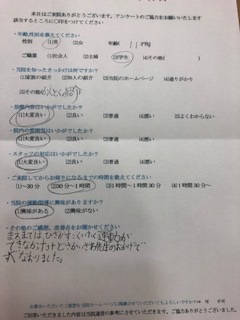 本日はご来院ありがとうございます。アンケートのご協力をお願いいたします
該当するところに○印をつけてください
・年齢、性別を教えてください
性別 ①男 ②女 年齢( 11 才)
ご職業 ①社会人 ②主婦 ③学生 ④その他( )
・当院を知ったきっかけは何ですか?
①家族の紹介 ②知人の紹介 ③当院のホームページ ④通りがかり
⑤その他
・診療内容はいかがでしたか?
①大変良い ②良い ③普通 ④悪い ⑤よくわからない
・院内の雰囲気はいかがでしたか?
①大変良い ②良い ③普通 ④悪い
・スタッフの対応はいかがでしたか?
①大変良い ②良い ③普通 ④悪い
・ご来院してからお帰りになるまでの時間を教えてください
①1〜30分 ②30分〜1時間 ③1時間〜1時間30分 ④1時間30分〜
・当院の運動指導に興味がありますか?
①興味がある ②興味がない
・その他のご感想、改善点をお聞かせください
まえまではひざがすごくいたく運動が
できなかったけどさかいさわ先生のおかげで
すぐなおりました。